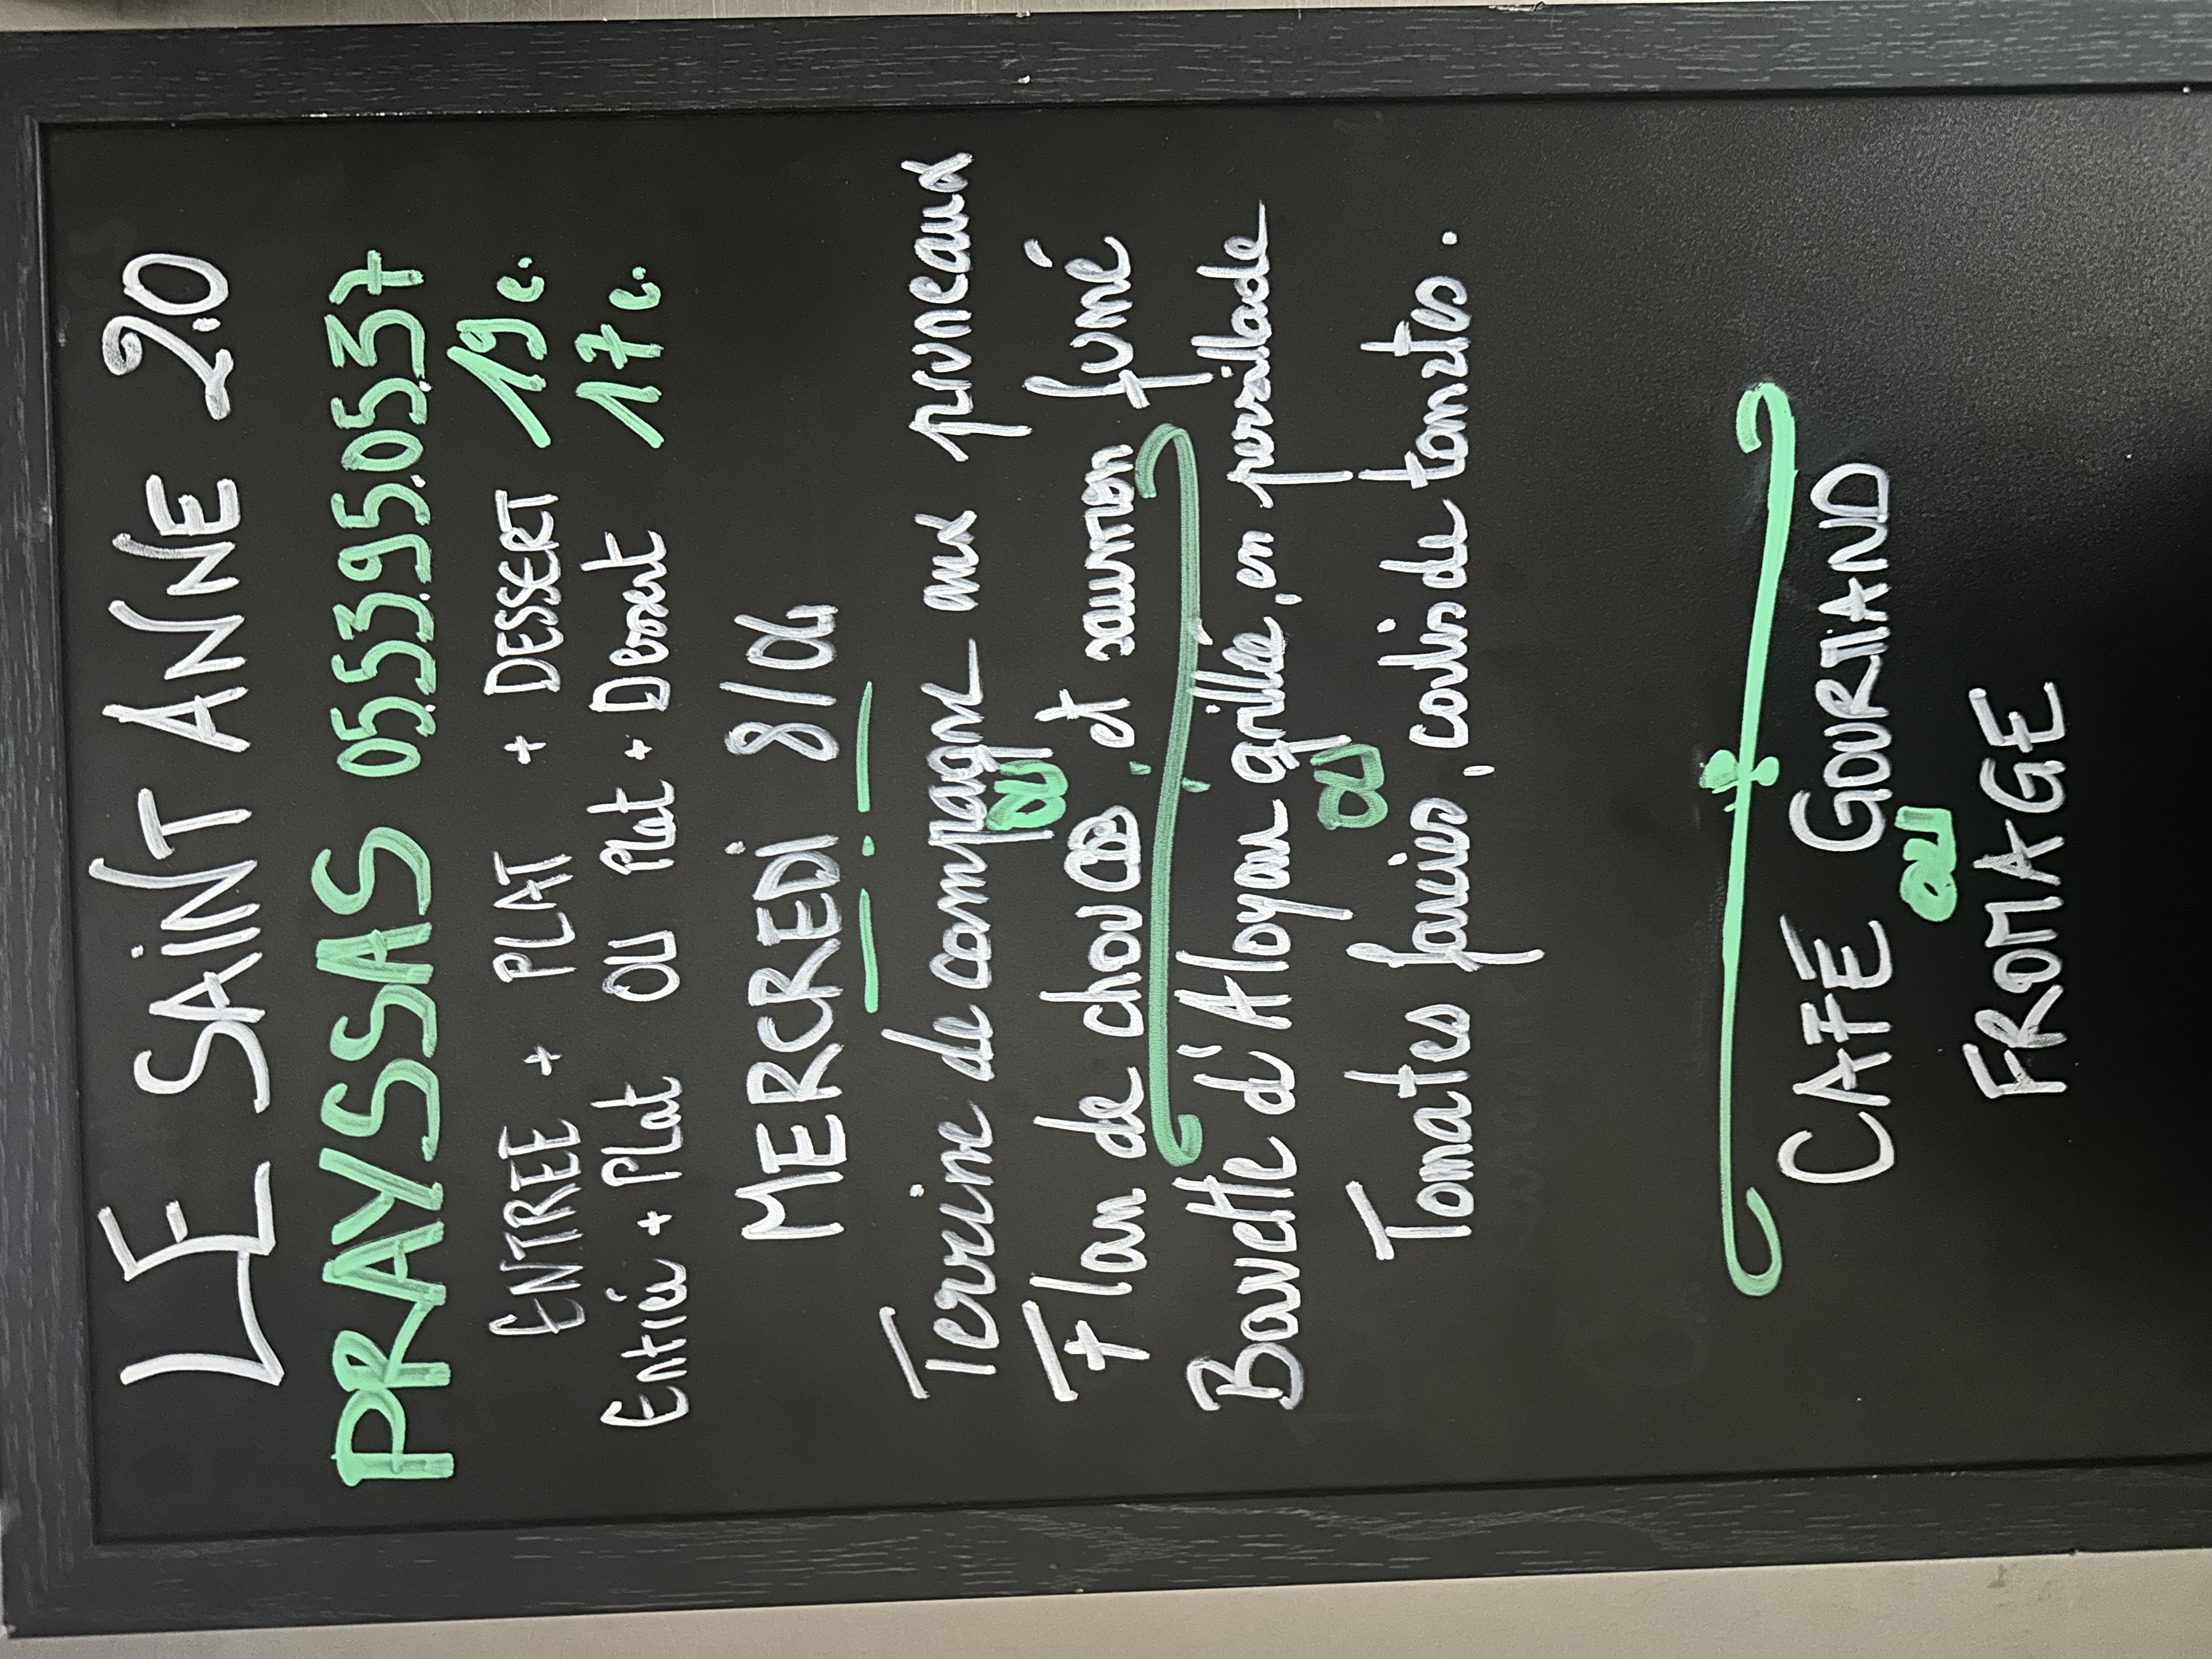 LE SAINT ANNE 2.0
PRAYSSAS 05.53.95.05.37
ENTREE + PLAT + DESSERT 19 €.
Entrée + Plat OU Plat + Dessert 17 €.
MERCREDI 8/04
Terrine de campagne aux pruneaux
OU
Flan de chou et saumon fumé
Bavette d'Aloyau grillée, en persillade
OU
Tomates farcies, coulis de tomates.
CAFÉ GOURMAND
OU
FROMAGE